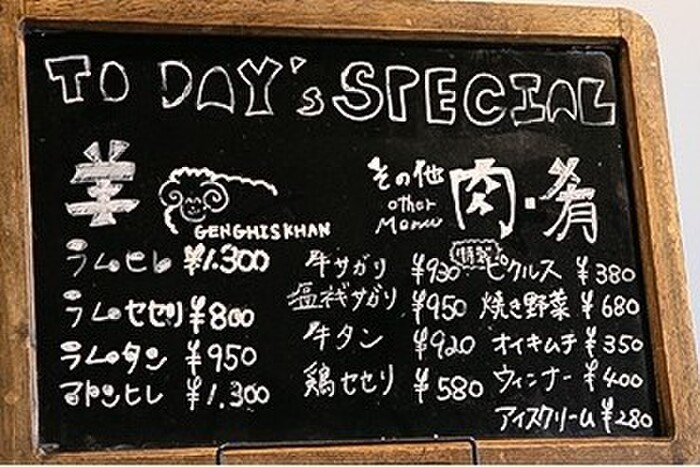 TO DAY's SPECIAL
羊
GENGHISKHAN
ラムヒレ ¥1.300
ラムセセリ ¥800
ラムタン ¥950
マトンヒレ ¥1.300
その他
other
Menu
肉・肴
牛サガリ ¥930
塩サガリ ¥950
牛タン ¥920
鶏セセリ ¥580
特製
ピクルス ¥380
焼き野菜 ¥680
オイキムチ ¥350
ウィンナー ¥400
アイスクリーム ¥280